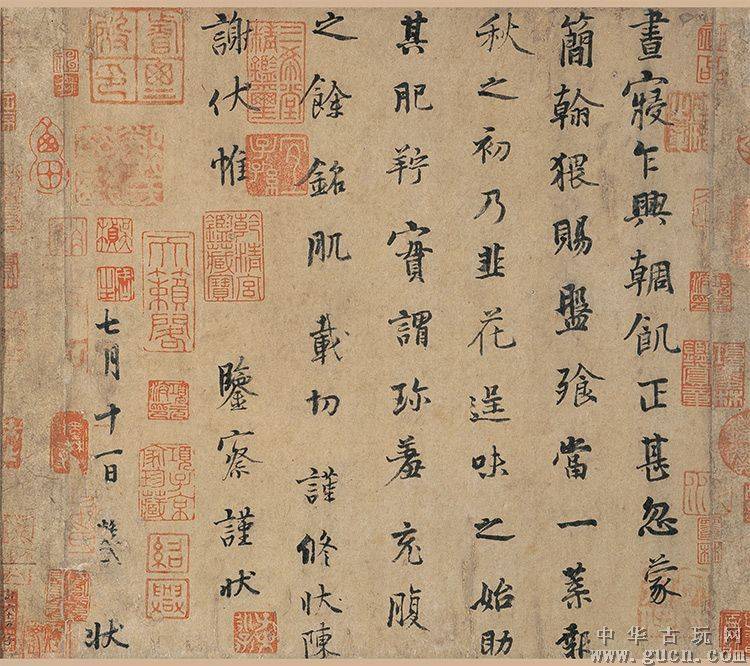 晝寢乍興輖飢正甚忽蒙
簡翰猥賜盤飧當一葉報
秋之初乃韭花逞味之始助
其肥羜實謂珍羞充腹
之餘銘肌載切謹修狀陳
謝伏惟鑒察謹狀
七月十一日狀
三希堂精鑑璽
宜子孫
乾清宮鑑藏寶
天籟閣
項子京家珍藏
紹興
中华古玩网
www.gucn.com